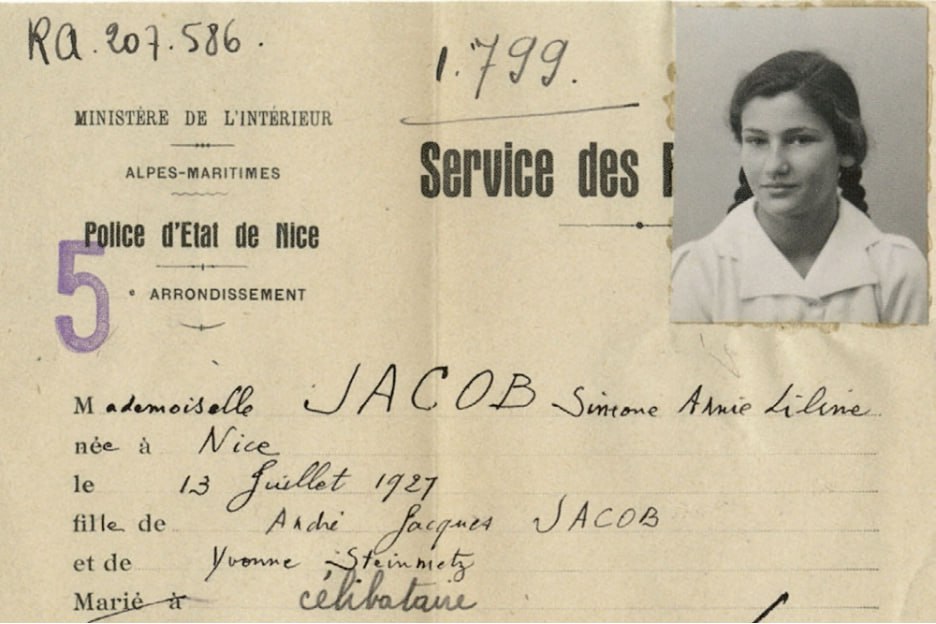 RA.207.586.
1.799.
MINISTÈRE DE L'INTÉRIEUR
ALPES-MARITIMES
Service des
Police d'Etat de Nice
5
ARRONDISSEMENT
Mademoiselle JACOB Simone Annie Liline
née à Nice
le 13 Juillet 1927
fille de André Jacques JACOB
et de Yvonne Steinmetz
Marié à célibataire